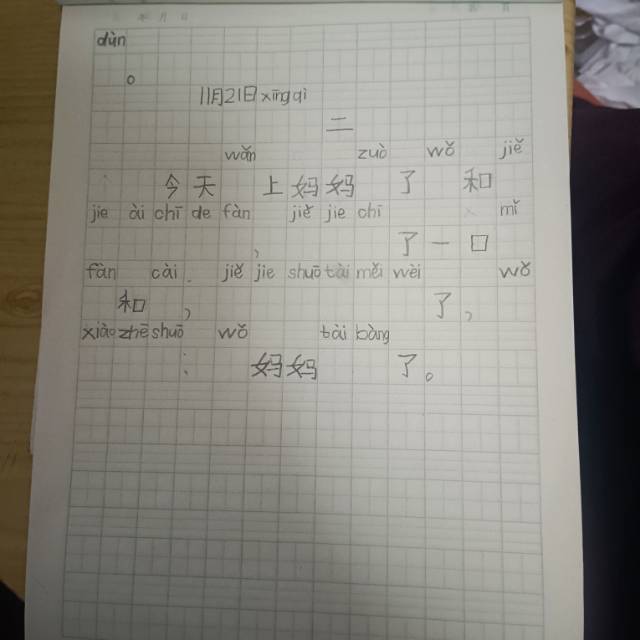 年 月 日
dùn
。
11月21日xīngqì
二
wǎn zuò wǒ jiě
今天 上妈妈 了 和
jie ài chī de fàn jiě jie chī mǐ
, 了一口
fàn cài jiě jie shuō tài měi wèi wǒ
和 , 了,
xiào zhē shuō wǒ tài bàng
: 妈妈 了。